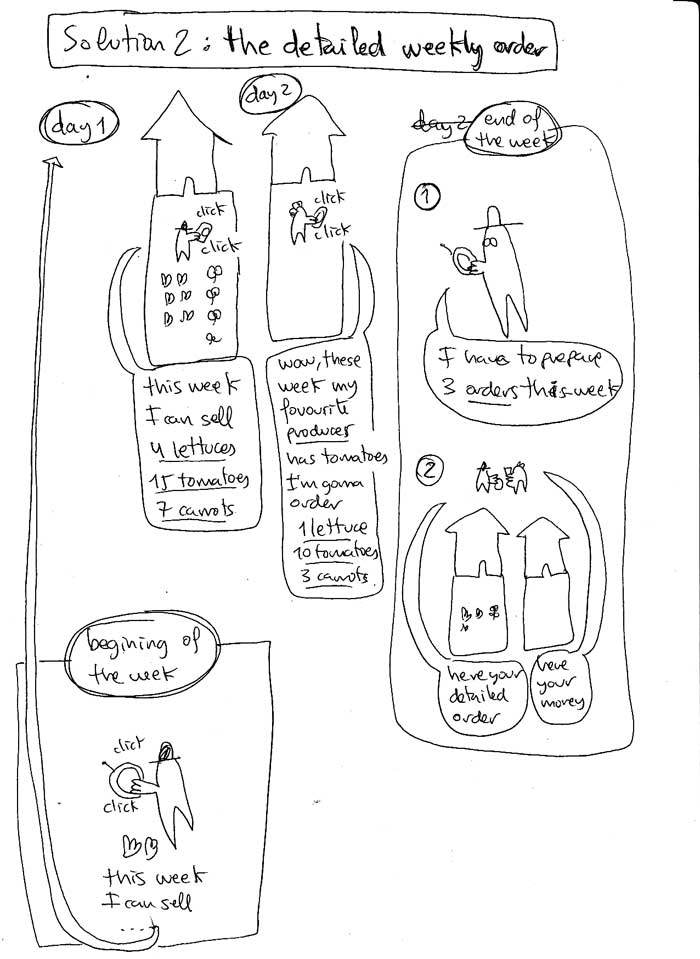 Solution 2 : the detailed weekly order
day 1
click
click
this week
I can sell
4 lettuces
15 tomatoes
7 carrots
day 2
click
click
wow, these
week my
favourite
producer
has tomatoes
I'm gonna
order
1 lettuce
10 tomatoes
3 carrots
day 2 end of
the week
1
I have to prepare
3 orders this week
2
here your
detailed
order
here
your
money
begining of
the week
click
click
this week
I can sell
....